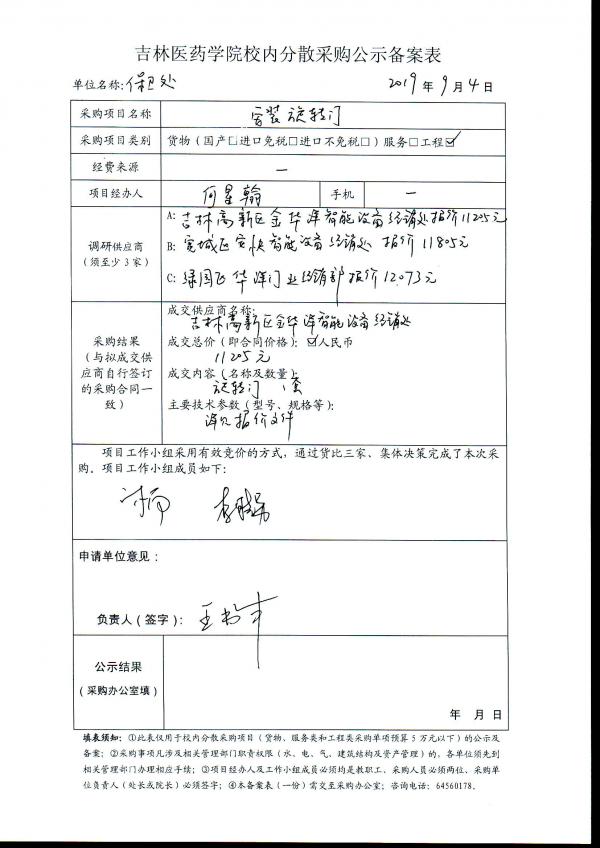 吉林医药学院校内分散采购公示备案表
单位名称：保卫处 2019 年 9 月 4 日
采购项目名称 安装旋转门
采购项目类别 货物（国产□进口免税□进口不免税□）服务□工程☑
经费来源 —
项目经办人 何星翰 手机 —
调研供应商
（须至少 3 家）
A: 吉林高新区金华洋智能设备经销处报价11205元
B: 宽城区安快智能设备经销处 报价 11805元
C: 绿园区华洋门业经销部报价12073元
采购结果
（与拟成交供
应商自行签订
的采购合同一
致）
成交供应商名称：
吉林高新区金华洋智能设备经销处
成交总价（即合同价格）：☑人民币
11205元
成交内容（名称及数量）：
旋转门 1套
主要技术参数（型号、规格等）：
详见报价文件
项目工作小组采用有效竞价的方式，通过货比三家、集体决策完成了本次采
购。项目工作小组成员如下：
申请单位意见：
负责人（签字）：
公示结果
（采购办公室填）
年 月 日
填表须知：①此表仅用于校内分散采购项目（货物、服务类和工程类采购单项预算 5 万元以下）的公示及
备案；②采购事项凡涉及相关管理部门职责权限（水、电、气、建筑结构及资产管理）的，各单位须先到
相关管理部门办理相应手续；③项目经办人及工作小组成员必须均是教职工、采购人员必须两位、采购单
位负责人（处长或院长）必须签字；④本备案表（一份）需交至采购办公室；咨询电话：64560178。